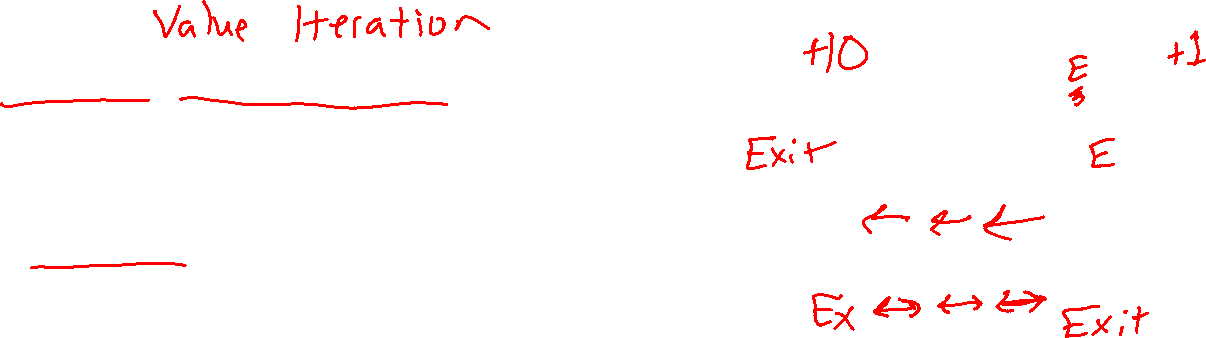 Value Iteration
+10 E +1
Exit E
← ← ←
Ex ↔ ↔ ↔ Exit